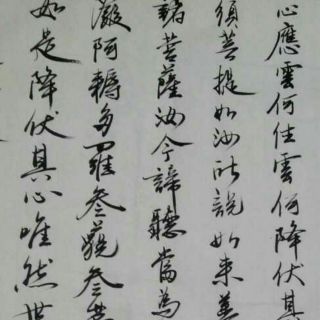 心應雲何住雲何降伏其
須菩提如汝所說如來善
諸菩薩汝今諦聽當為
發阿耨多羅三藐三菩
如是降伏其心唯然世